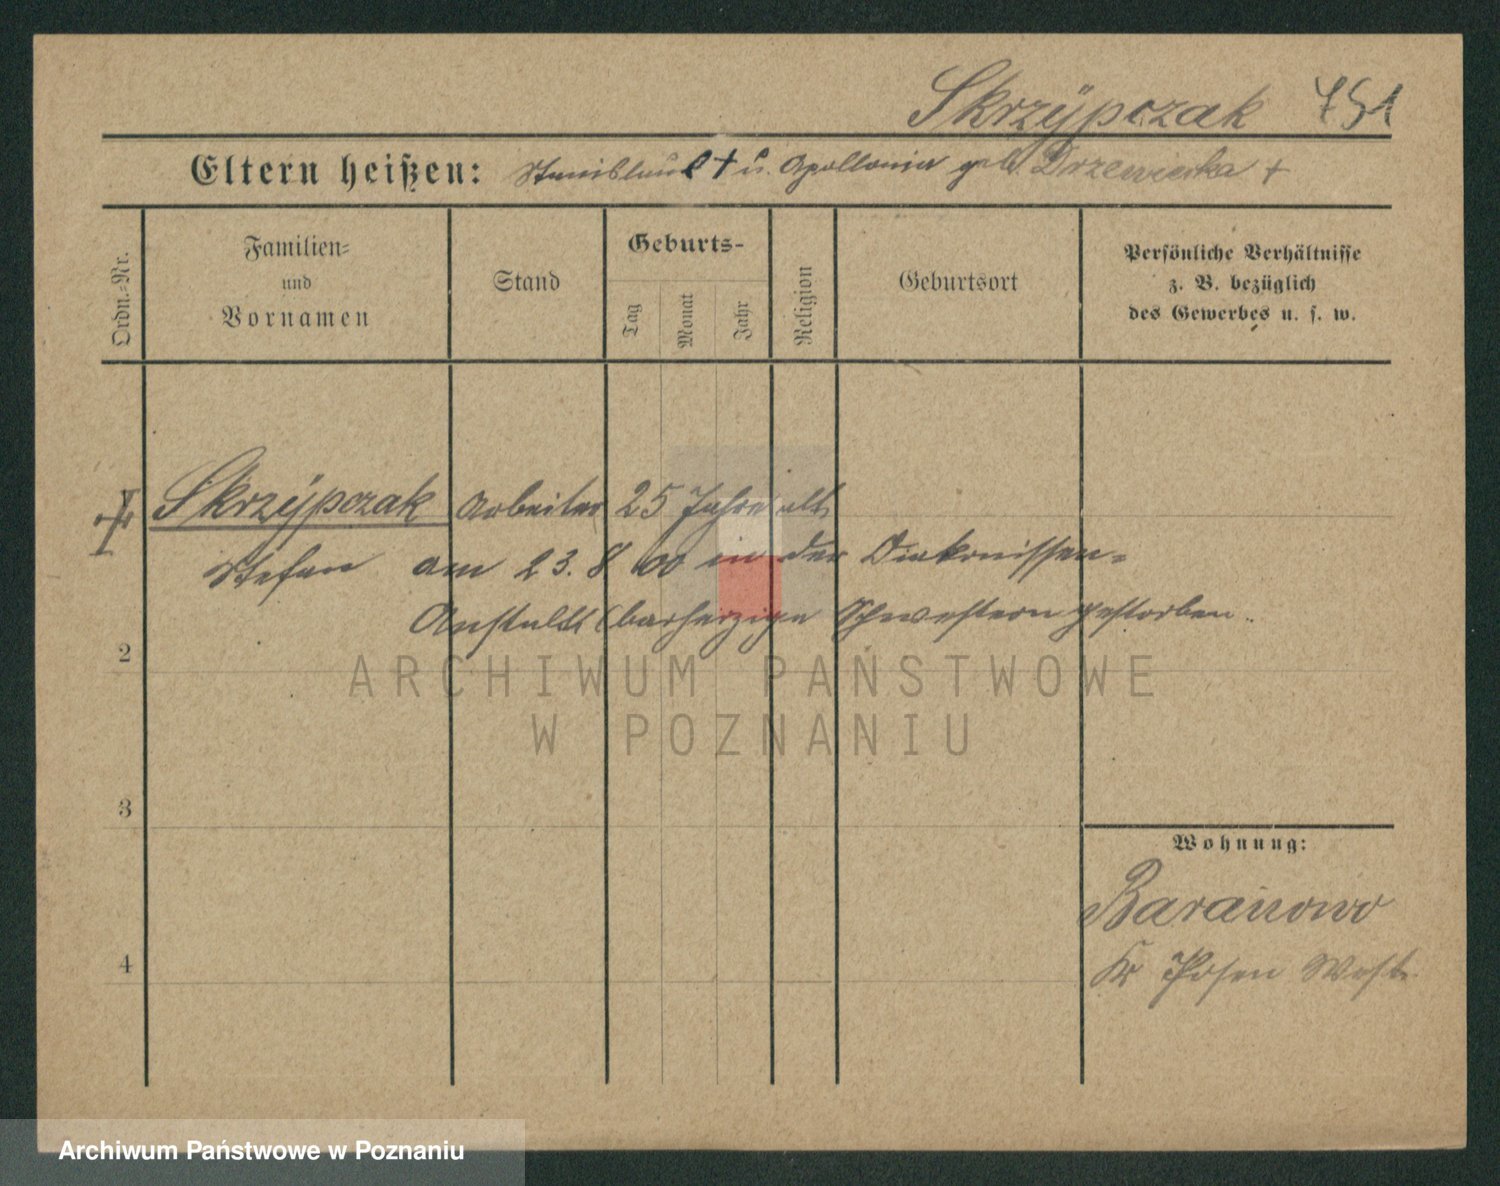 Skrzÿpczak 751
Eltern heißen: Stanislaus † u. Apollonia geb. Drzewiecka †
Ordn.-Nr.
Familien-
und
Vornamen
Stand
Geburts-
Tag
Monat
Jahr
Religion
Geburtsort
Persönliche Verhältnisse
z. B. bezüglich
des Gewerbes u. s. w.
Skrzÿpczak Arbeiter 25 Jahre alt,
Stefan am 23. 8. 00 in der Diakonissen-
Anstalt (barherzige Schwestern gestorben.
2
3
4
Wohnung:
Baranowo
Kr Posen West
ARCHIWUM PAŃSTWOWE
W POZNANIU
Archiwum Państwowe w Poznaniu